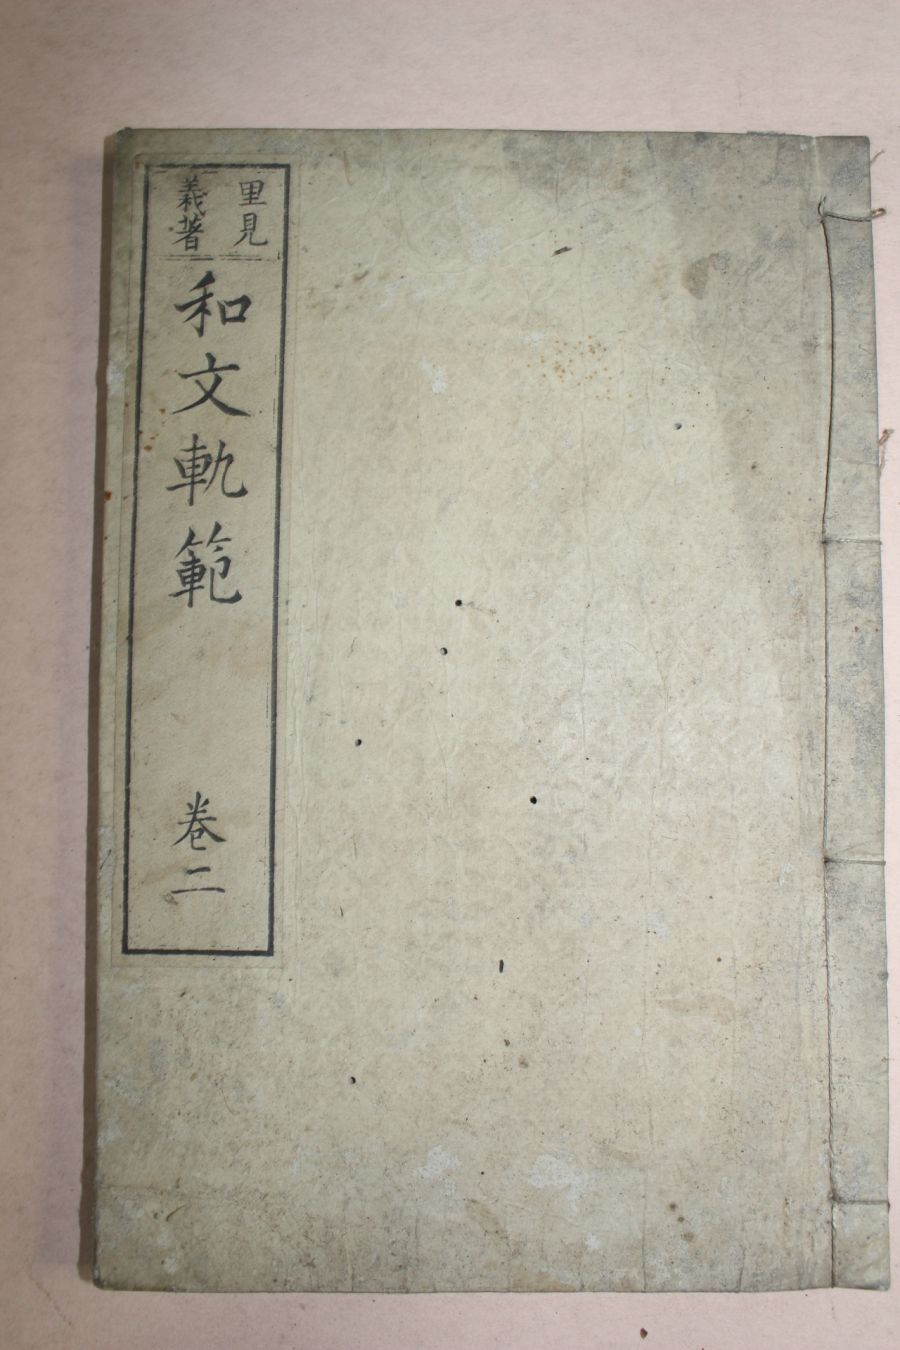 里見
義著
和文軌範
巻二